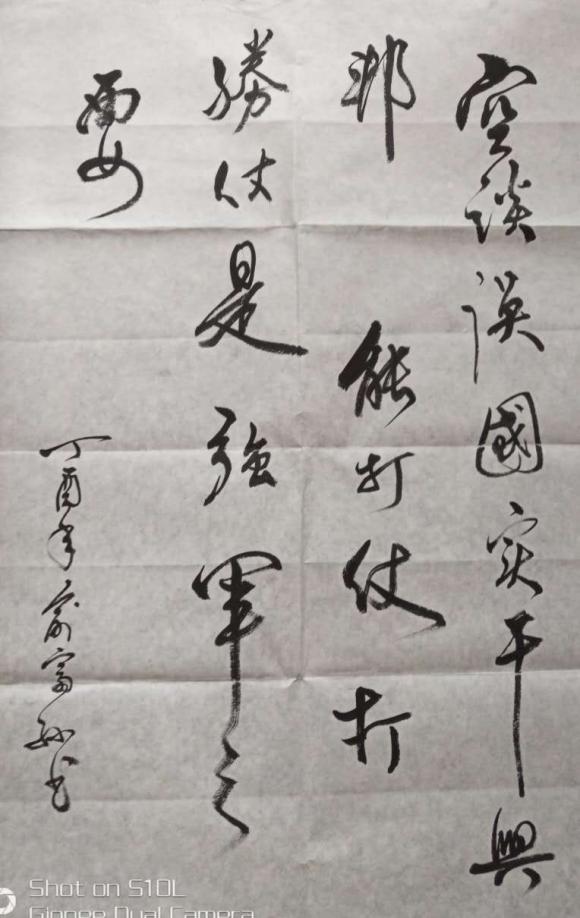 空談誤國实干興
邦 能打仗打
勝仗是強軍之
要
丁酉年俞富孙书
Shot on S10L
Gionee Dual Camera